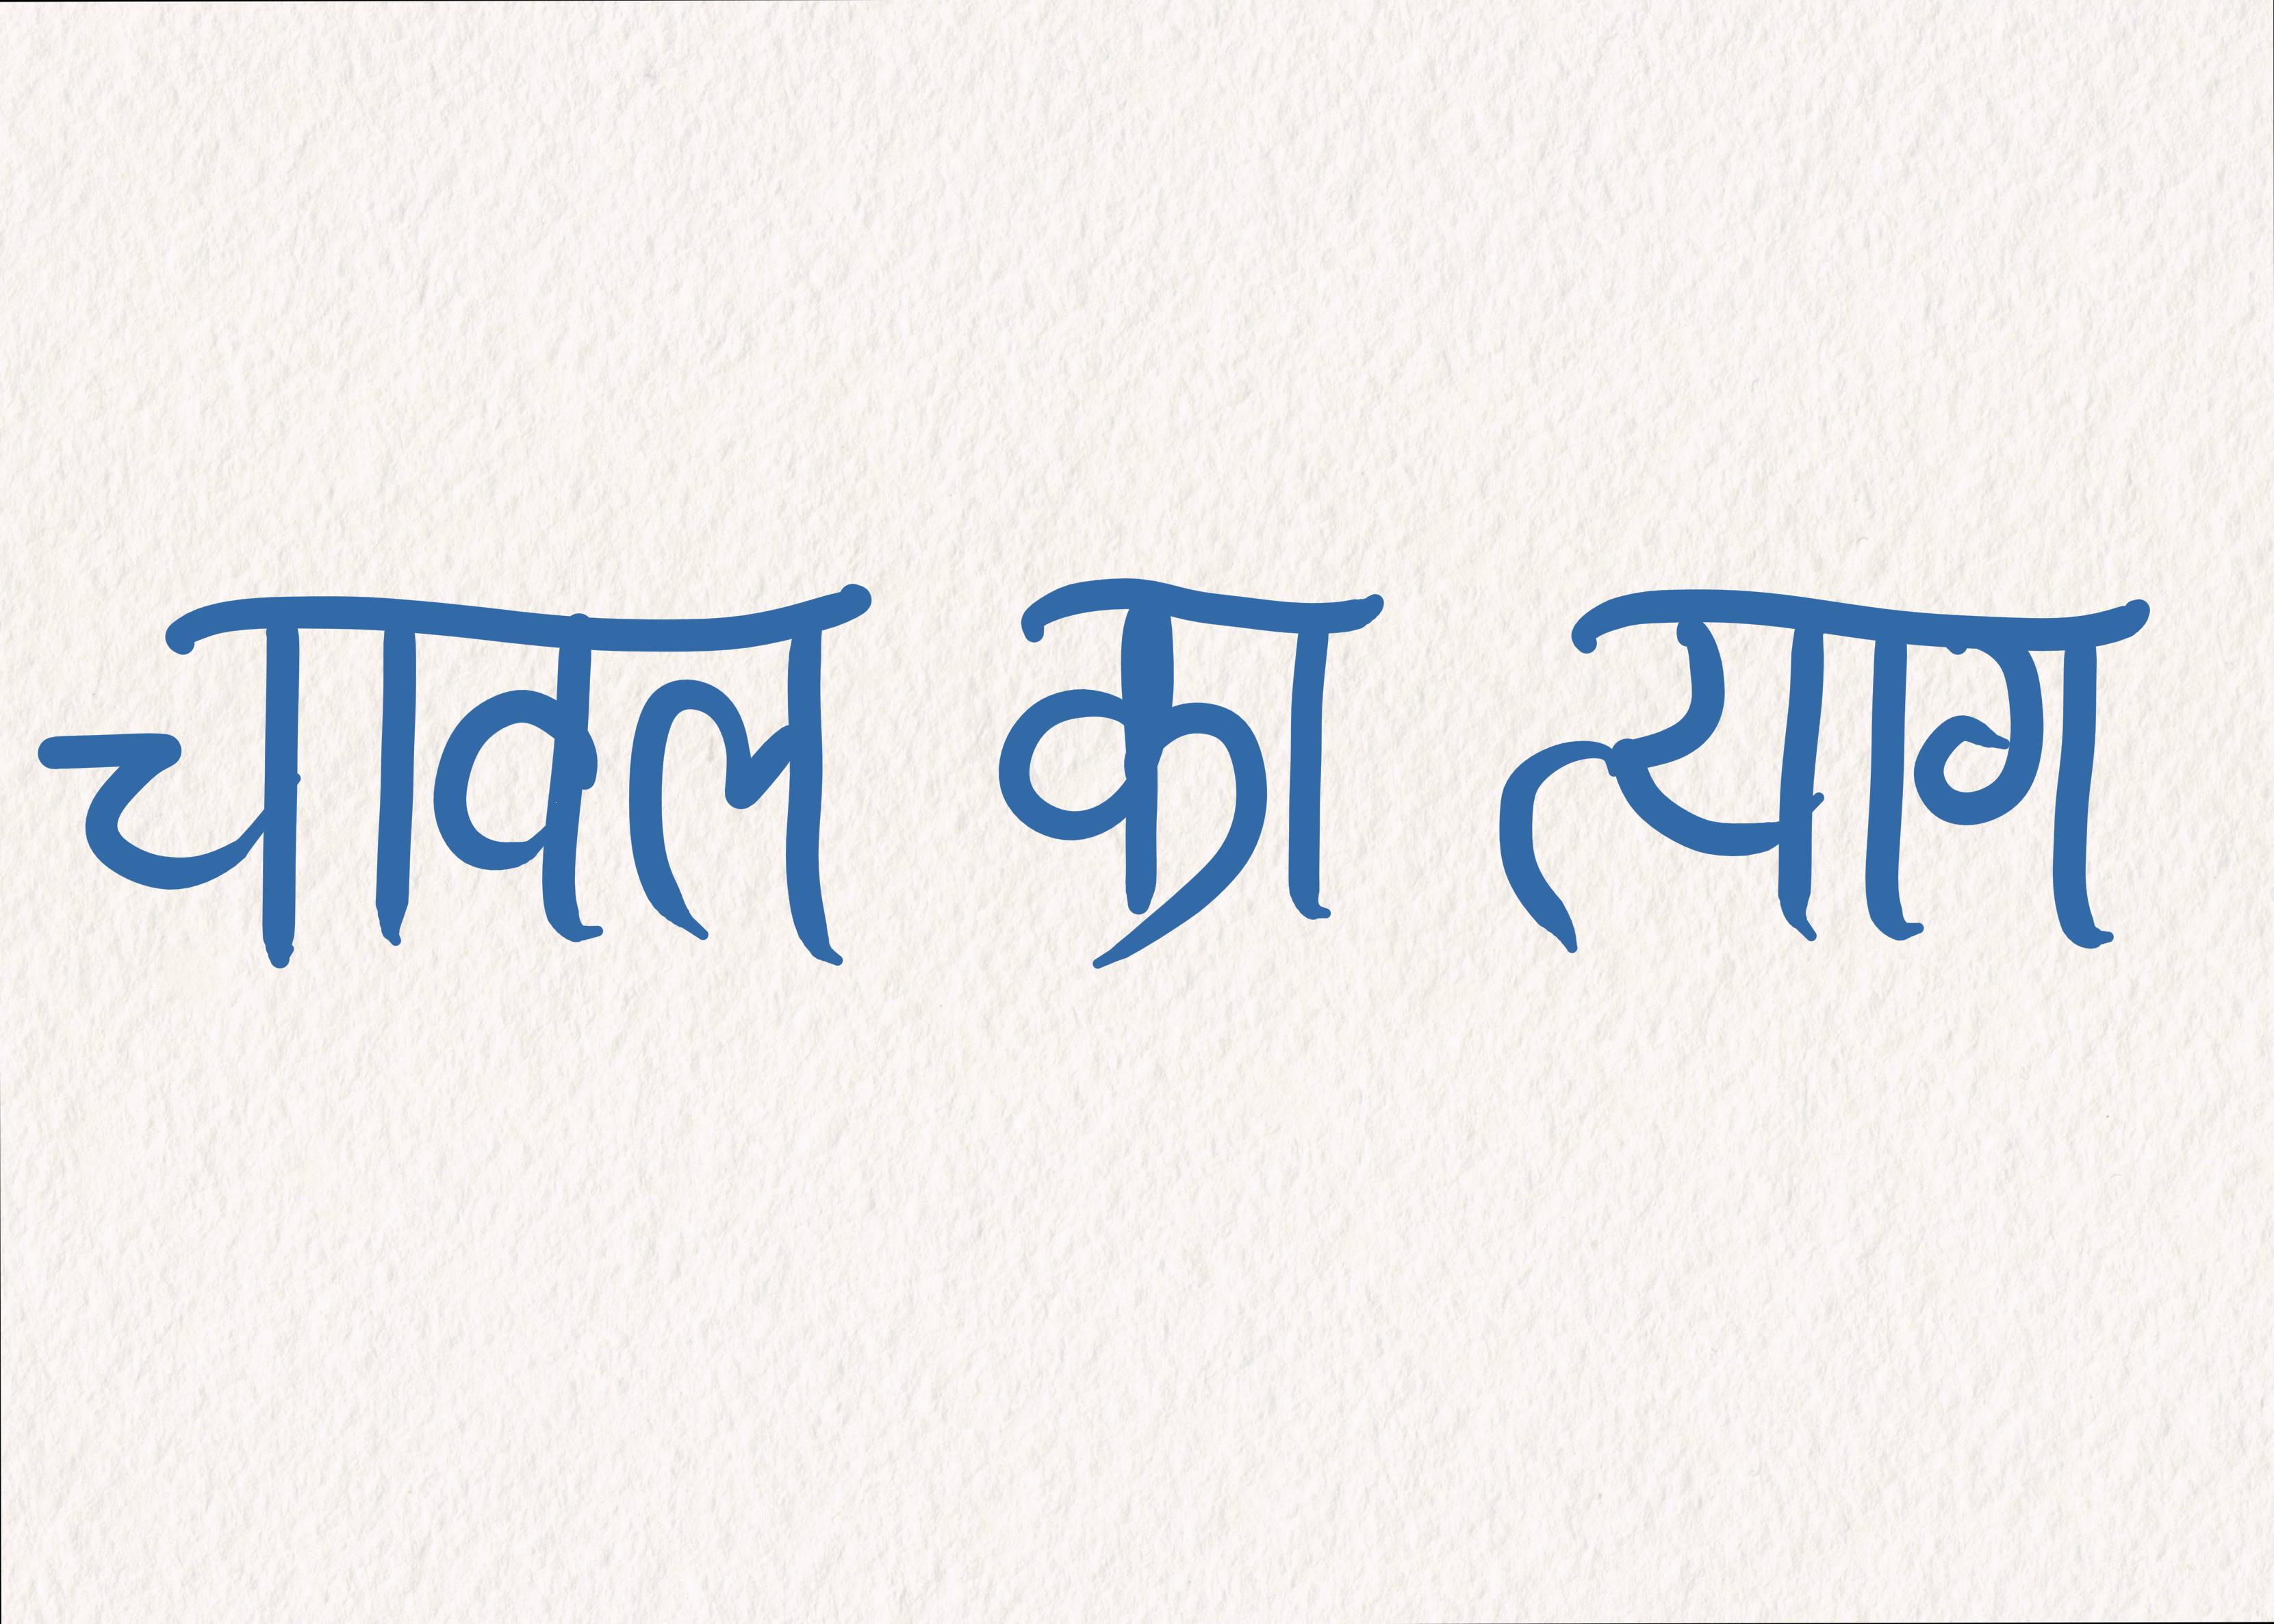 चावल का त्याग